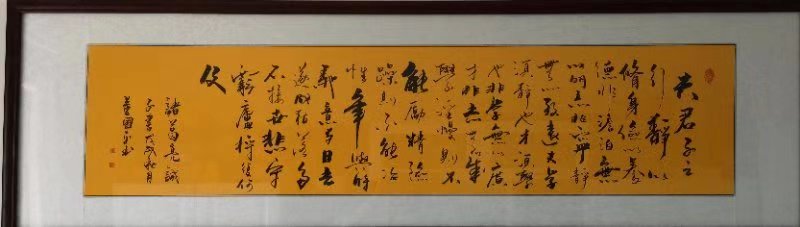 夫君子之
行静以
修身俭以养
德非澹泊無
以明志非宁静
無以致遠夫学
須静也才須学
也非学無以廣
才非志無以成
學淫慢則不
能勵精險
躁則不能冶
性年與時
馳意與日去
遂成枯落多
不接世悲守
窮廬将復何
及
諸葛亮誡
子書戊戌秋月